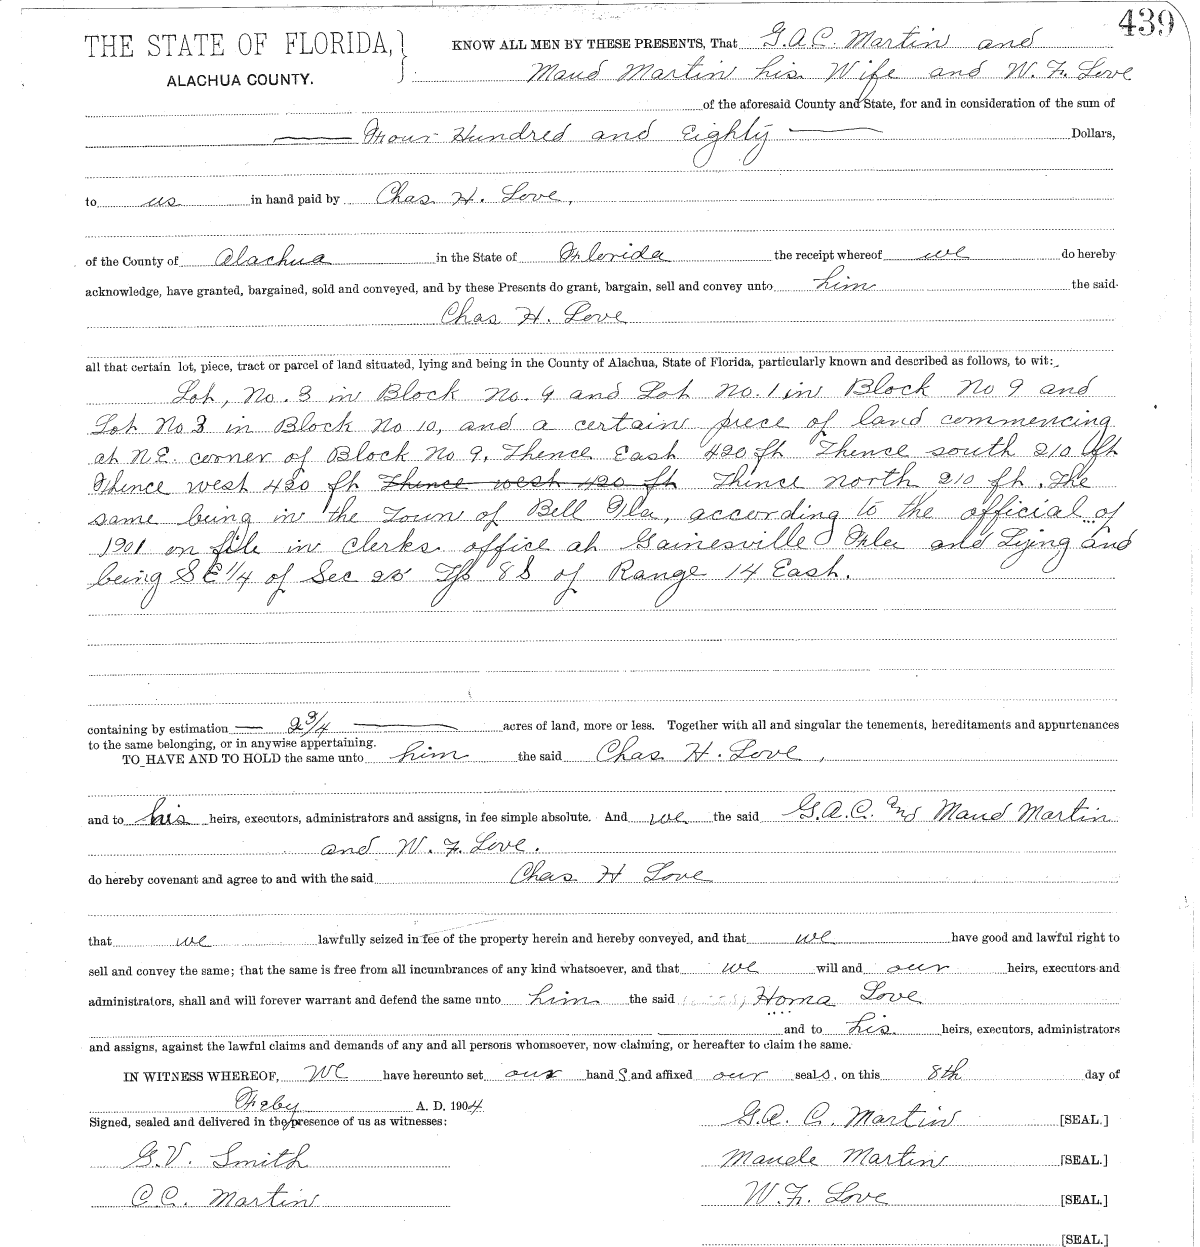 439
THE STATE OF FLORIDA, } KNOW ALL MEN BY THESE PRESENTS, That G.A.C. Martin and
ALACHUA COUNTY. Maud Martin his Wife and W. F. Love
of the aforesaid County and State, for and in consideration of the sum of
Four Hundred and Eighty Dollars,
to us in hand paid by Chas H. Love,
of the County of Alachua in the State of Florida the receipt whereof we do hereby
acknowledge, have granted, bargained, sold and conveyed, and by these Presents do grant, bargain, sell and convey unto him the said
Chas H. Love
all that certain lot, piece, tract or parcel of land situated, lying and being in the County of Alachua, State of Florida, particularly known and described as follows, to wit:
Lot, No. 3 in Block No. 9 and Lot No. 1 in Block No 9 and
Lot No 3 in Block No 10, and a certain piece of land commencing
at N.E. corner of Block No 9, Thence East 420 ft Thence south 210 ft
Thence west 420 ft Thence west 420 ft Thence north 210 ft. The
same being in the Town of Bell Fla, according to the official of
1901 on file in Clerks office at Gainesville Fla and Lying and
being SE 1/4 of Sec Tp 8 S of Range 14 East.
containing by estimation — 2 3/4 — acres of land, more or less. Together with all and singular the tenements, hereditaments and appurtenances
to the same belonging, or in anywise appertaining.
TO HAVE AND TO HOLD the same unto him the said Chas H. Love,
and to his heirs, executors, administrators and assigns, in fee simple absolute. And we the said G.A.C. and Maud Martin
and W. F. Love.
do hereby covenant and agree to and with the said Chas H Love
that we lawfully seized in fee of the property herein and hereby conveyed, and that we have good and lawful right to
sell and convey the same; that the same is free from all incumbrances of any kind whatsoever, and that we will and our heirs, executors and
administrators, shall and will forever warrant and defend the same unto him the said Homa Love
and to his heirs, executors, administrators
and assigns, against the lawful claims and demands of any and all persons whomsoever, now claiming, or hereafter to claim the same.
IN WITNESS WHEREOF, we have hereunto set our hand s and affixed our seals, on this 8th day of
Feby A. D. 1904
Signed, sealed and delivered in the presence of us as witnesses:
G.A. C. Martin [SEAL.]
G.V. Smith Maude Martin [SEAL.]
C.C. Martin W. F. Love [SEAL.]
[SEAL.]